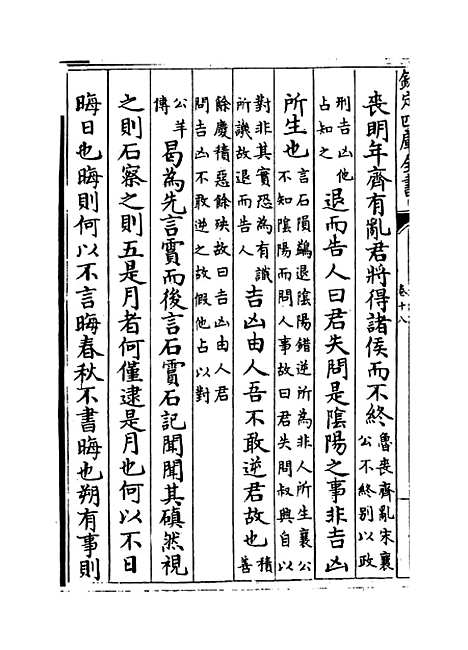 欽定四庫全書
卷十八
喪明年齊有亂君將得諸侯而不終
魯喪齊亂宋襄
公不終別以政
刑吉凶他
占知之
退而告人曰君失問是陰陽之事非吉凶
所生也
言石隕鷁退陰陽錯逆所為非人所生襄公
不知陰陽而問人事故曰君失問叔興自以
對非其實恐為有識
所譏故退而告人
吉凶由人吾不敢逆君故也
積
善
餘慶積惡餘殃故曰吉凶由人君
問吉凶不敢逆之故假他占以對
公羊
傳
曷為先言霣而後言石霣石記聞聞其磌然視
之則石察之則五是月者何僅逮是月也何以不日
晦日也晦則何以不言晦春秋不書晦也朔有事則